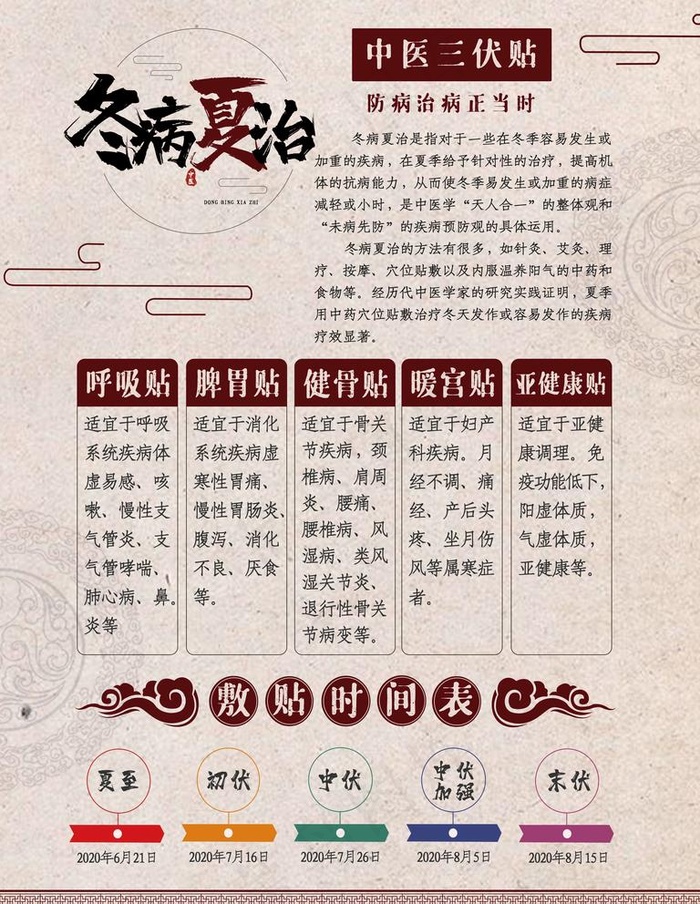 冬病夏治
中医
DONG BING XIA ZHI
中医三伏贴
防病治病正当时
冬病夏治是指对于一些在冬季容易发生或
加重的疾病，在夏季给予针对性的治疗，提高机
体的抗病能力，从而使冬季易发生或加重的病症
减轻或小时，是中医学“天人合一”的整体观和
“未病先防”的疾病预防观的具体运用。
冬病夏治的方法有很多，如针灸、艾灸、理
疗、按摩、穴位贴敷以及内服温养阳气的中药和
食物等。经历代中医学家的研究实践证明，夏季
用中药穴位贴敷治疗冬天发作或容易发作的疾病
疗效显著。
呼吸贴
适宜于呼吸
系统疾病体
虚易感、咳
嗽、慢性支
气管炎、支
气管哮喘、
肺心病、鼻。
炎等
脾胃贴
适宜于消化
系统疾病虚
寒性胃痛、
慢性胃肠炎、
腹泻、消化
不良、厌食
等。
健骨贴
适宜于骨关
节疾病，颈
椎病、肩周
炎、腰痛、
腰椎病、风
湿病、类风
湿关节炎、
退行性骨关
节病变等。
暖宫贴
适宜于妇产
科疾病。月
经不调、痛
经、产后头
疼、坐月伤
风等属寒症
者。
亚健康贴
适宜于亚健
康调理。免
疫功能低下，
阳虚体质，
气虚体质，
亚健康等。
敷贴时间表
夏至
2020年6月21日
初伏
2020年7月16日
中伏
2020年7月26日
中伏
加强
2020年8月5日
末伏
2020年8月15日